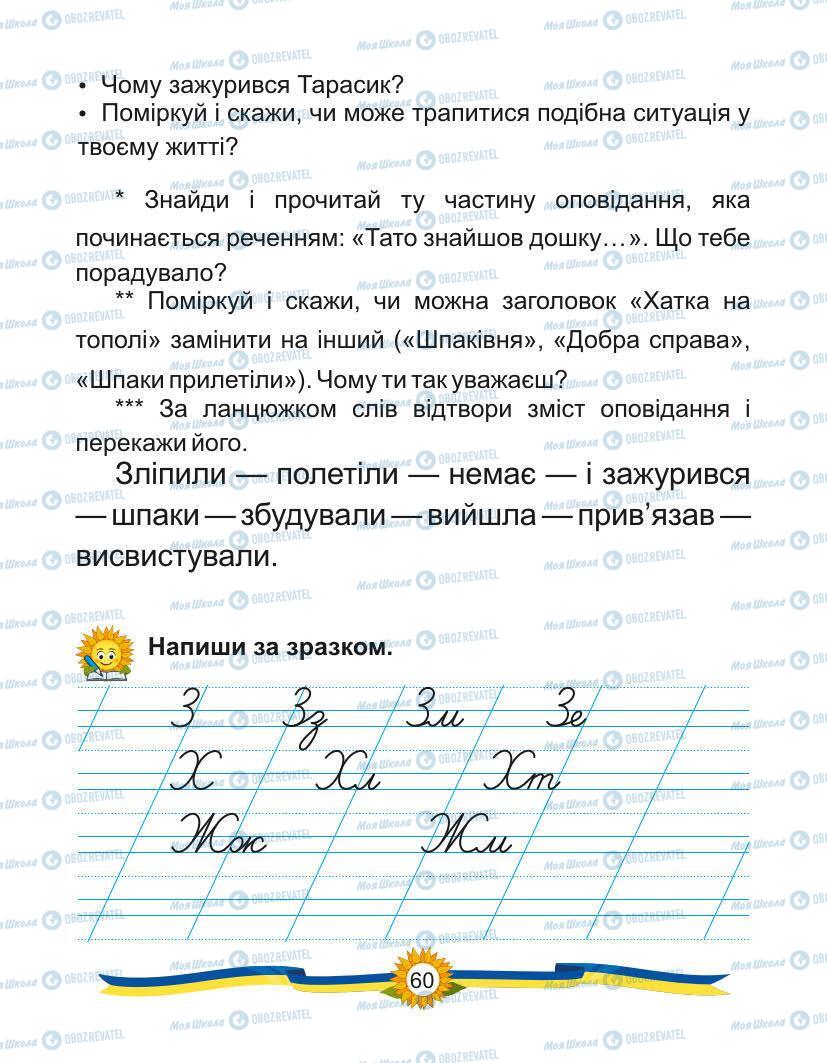 • Чому зажурився Тарасик?
• Поміркуй і скажи, чи може трапитися подібна ситуація у
твоєму житті?
* Знайди і прочитай ту частину оповідання, яка
починається реченням: «Тато знайшов дошку…». Що тебе
порадувало?
** Поміркуй і скажи, чи можна заголовок «Хатка на
тополі» замінити на інший («Шпаківня», «Добра справа»,
«Шпаки прилетіли»). Чому ти так уважаєш?
*** За ланцюжком слів відтвори зміст оповідання і
перекажи його.
Зліпили — полетіли — немає — і зажурився
— шпаки — збудували — вийшла — прив’язав —
висвистували.
Напиши за зразком.
З Зз Зм Зе
Х Хл Хт
Жж Жм
60
МОЯ ШКОЛА OBOZREVATEL